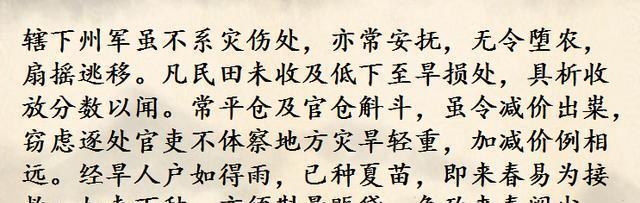 辖下州军虽不系灾伤处，亦常安抚，无令堕农，
扇摇逃移。凡民田未收及低下至旱损处，具析收
放分数以闻。常平仓及官仓斛斗，虽令减价出粜，
窃虑逐处官吏不体察地方灾旱轻重，加减价例相
远。经旱人户如得雨，已种夏苗，即来春易为接